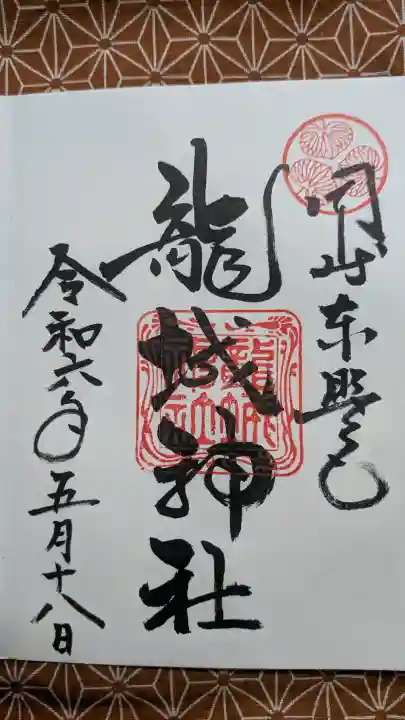 岡崎東照宮
龍城神社
令和六年五月十八日